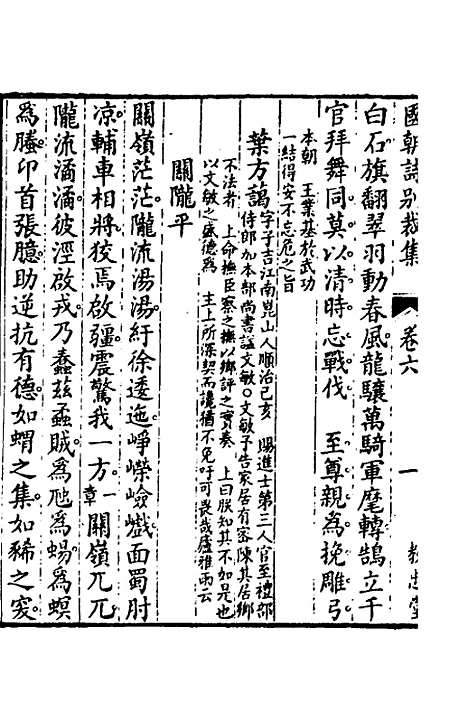 國朝詩别裁集 卷六 一 教忠堂
白石旗翻翠羽動春風龍驤萬騎軍麾轉鵠立千
官拜舞同莫以清時忘戰伐 至尊親為挽雕弓
本朝 王業基於武功
一結得安不忘危之旨
葉方藹字子吉江南崑山人順治己亥 賜進士第三人官至禮部
侍郎加本部尚書諡文敏○文敏予告家居有密陳其居鄉
不法者 上命撫臣察之撫以鄉評之實奏 上曰朕知其不如是也
以文敏之盛德為 主上所深契而讒猶不免吁可畏哉盧雅雨云
關隴平
關嶺茫茫隴流湯湯紆徐逶迤崢嶸嶮巇面蜀肘
凉輔車相將狡焉啟疆震驚我一方一章關嶺兀兀
隴流潏潏彼涇啟戎乃蠢茲蟊賊為虺為蜴為螟
為螣卬首張臆助逆抗有德如蝟之集如豨之突